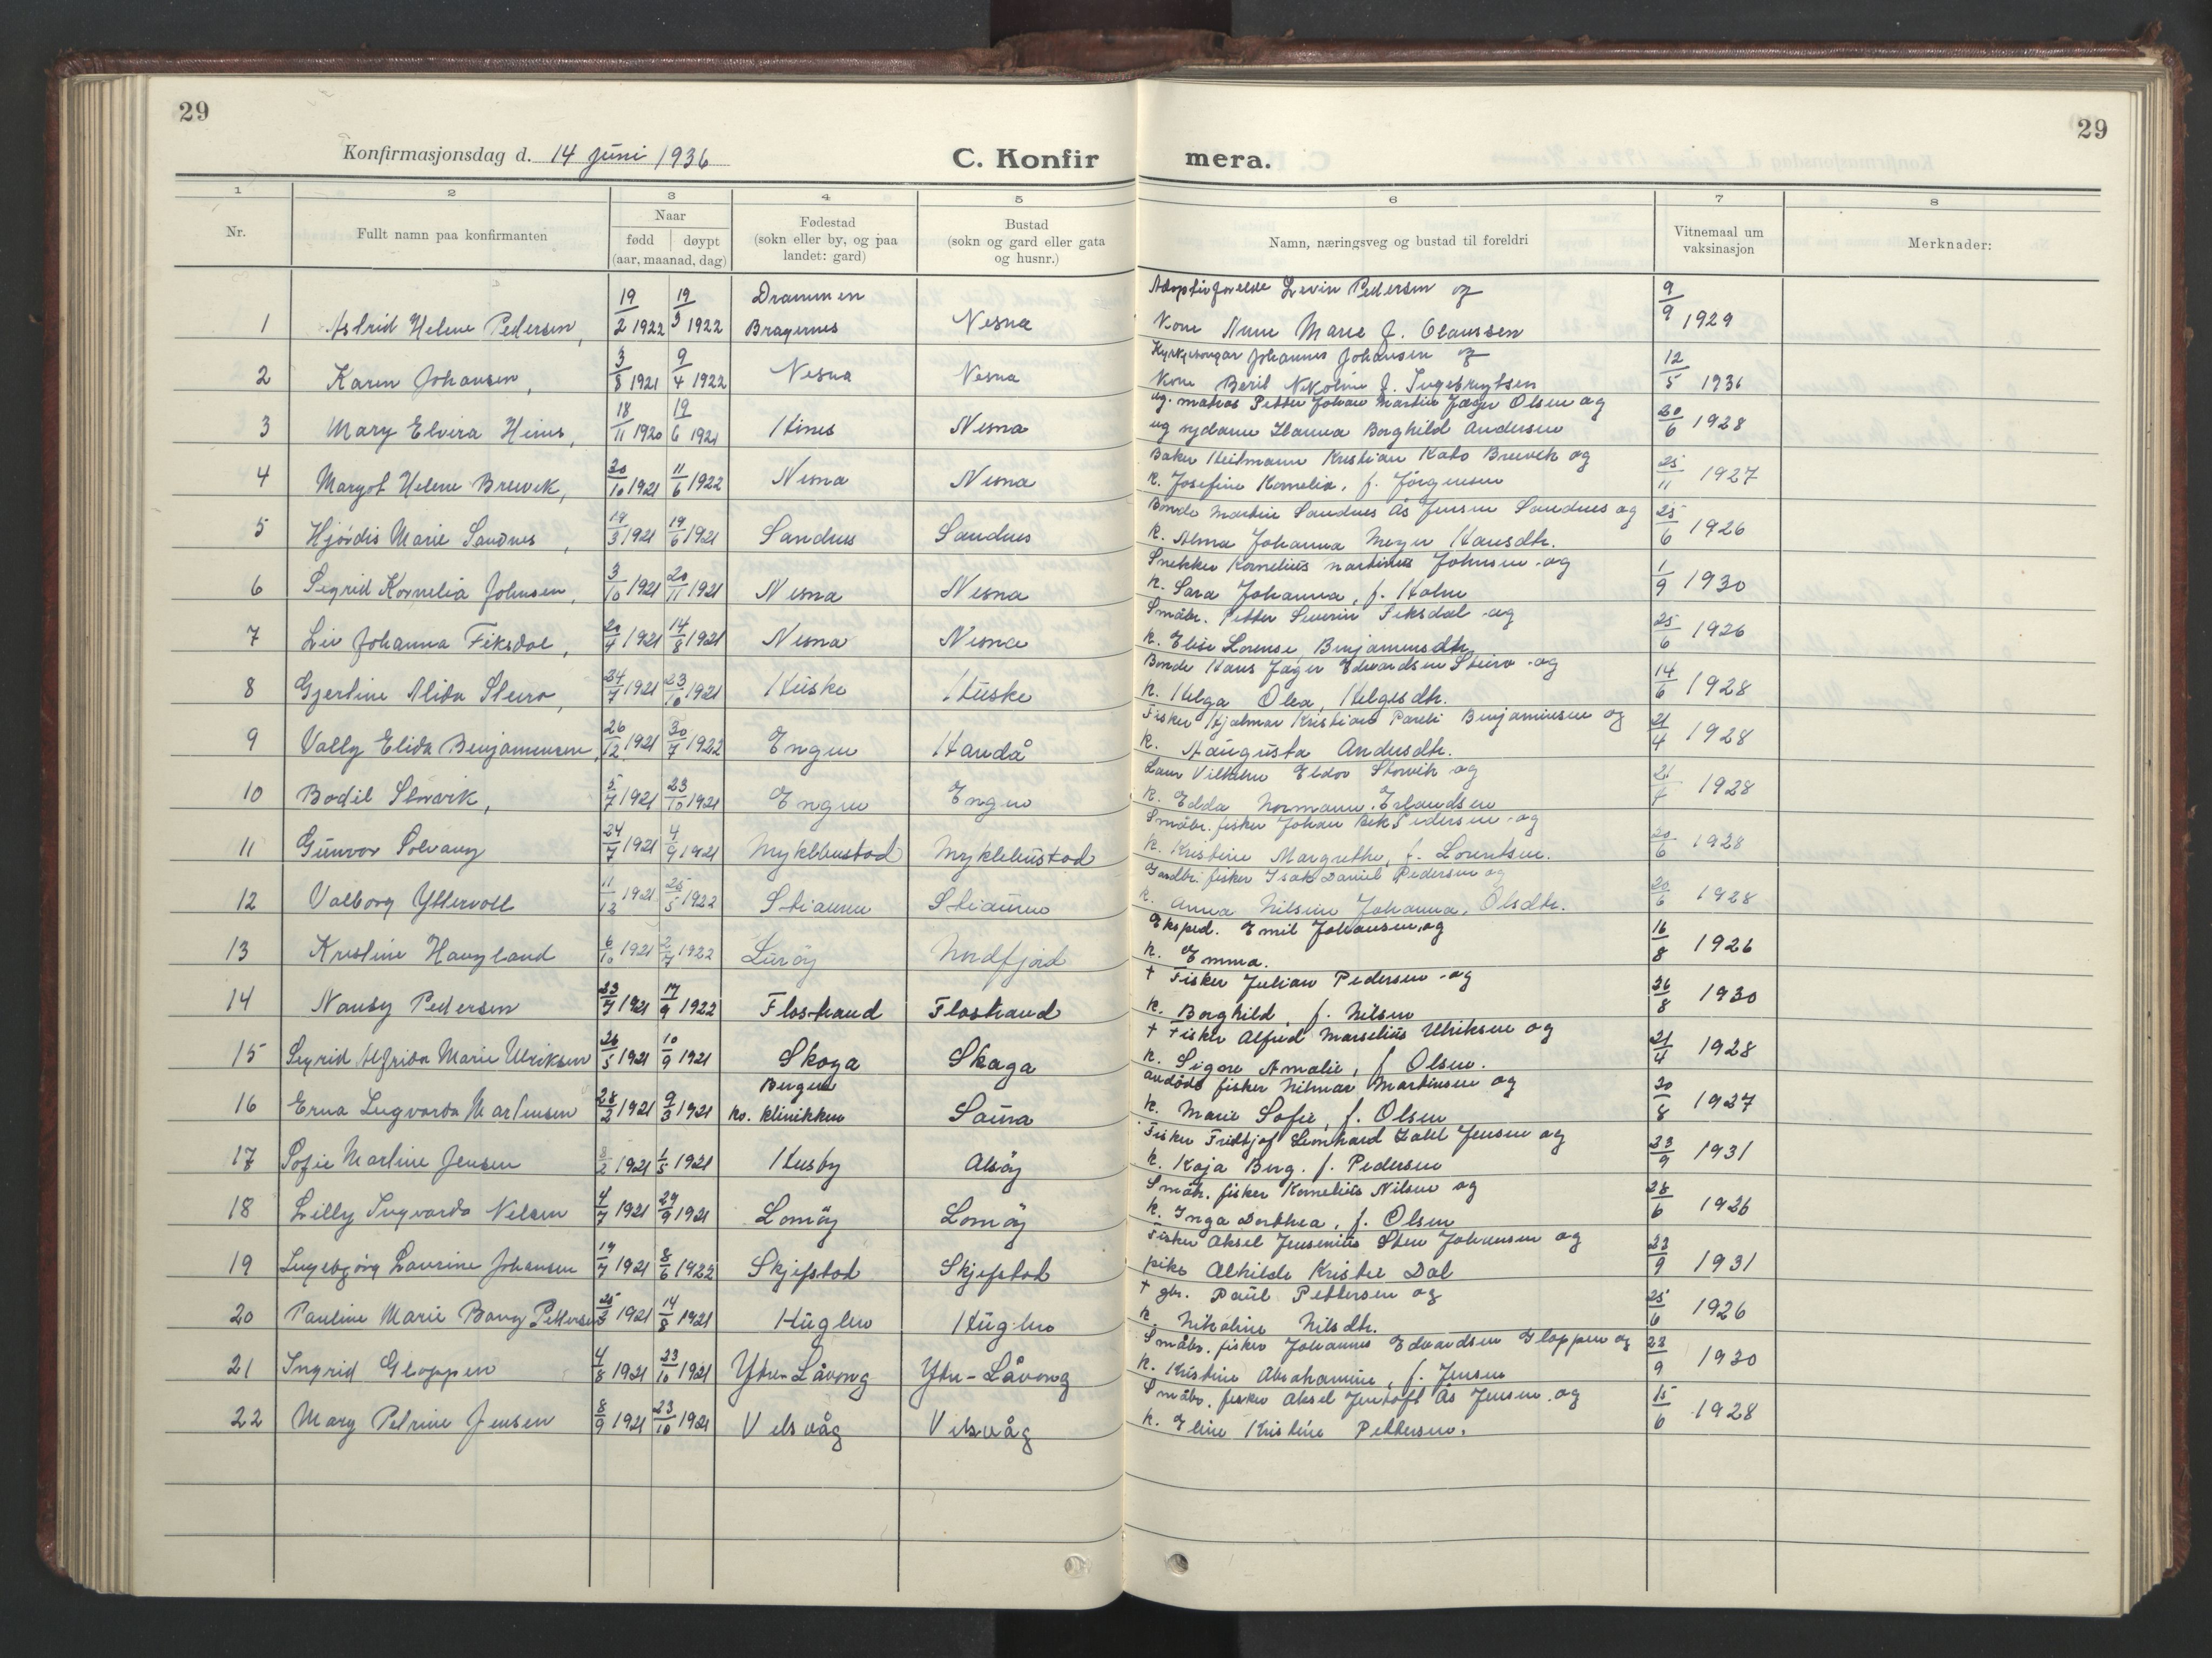 29
29
Konfirmasjonsdag d. 14 juni 1936
C. Konfir mera.
1 2 3 4 5 6 7 8
Nr. Fullt namn paa konfirmanten Naar fødd døypt (aar, maanad, dag) Fødestad (sokn eller by, og paa landet: gard) Bustad (sokn og gard eller gata og husnr.) Namn, næringsveg og bustad til foreldri Vitnemaal um vaksinasjon Merknader:
19/2 1922 19/3 1922 Drammen Adoptivforelde Levin Pedersen og 9/9 1929
1 Astrid Helene Pedersen, Bragernes Nesna Kone Anne Marie f. Olaussen
3/8 1921 9/4 1922 Johannes Johansen og 12/5
2 Karen Johansen, Nesna Nesna Kone Beril Nikoline f. Ingebrigtsen
18/11 1920 19/6 1921 ug. matros Petter Johan Martin Jæger Olsen og 20/6 1928
3 Mary Elvira Hines, Hines Nesna ug sydame Hanna Borghild Andersen
30/10 1921 11/6 1922 Baker Heitmann Kristian Kato Breivik og 25/11 1927
4 Margot Helene Breivik, Nesna Nesna k. Josefine Kornelia, f. Jörgensen
19/3 1921 19/6 1921 Bonde Martin Sandnes Ås Jensen Sandnes og 25/6 1926
5 Hjördis Marie Sandnes, Sandnes Sandnes k. Alma Johanna Meyer Hansdtr.
3/10 1921 20/11 1921 Snekker Kornelius Johnsen og 1/9 1930
6 Sigrid Kornelia Johnsen, Nesna Nesna k. Sara Johanna, f. Holm
20/4 1921 14/8 1921 Småbr. Petter Severin Fiksdal og 25/6 1926
7 Liv Johanna Fiksdal, Nesna Nesna k. Elise Lorense Benjaminsdtr.
24/7 1921 23/10 1921 Bonde Hans Jæger Edvardsen Steiro og 14/6 1928
8 Gjertine Alida Steiro, Huske Huske k. Helga Olea, Helgesdtr.
26/12 1921 30/7 1922 Fisker Hjalmar Kristian Pareli Benjaminsen og 21/4 1928
9 Vally Elida Benjaminsen, Engen Handå k. Augusta Andersdtr.
5/7 1921 23/10 1921 Vilhelm Eldor Storvik og 1928
10 Bodil Storvik, Engen Engen k. Edda Normann Erlandsen
24/7 1921 4/9 1921 Småbr. fisker Johan Bek Pedersen og 20/6 1928
11 Gunvor Solvang Myklebustad Myklebustad k. Kristine Margrethe, f. Lorentsen.
11/12 1921 25/5 1922 Gardbr. fisker Isak Daniel Pedersen og 20/6 1928
12 Valborg Yttervoll Stiauren Stiauren k. Anna Nilsine Johanna, Olsdtr.
6/10 1921 2/7 1922 Eksped. Emil Johansen og 16/8 1926
13 Kristine Haugland Luröy Nordfjord k. Emma.
23/7 1921 17/9 1922 † Fisker Julian Pedersen og 26/8 1930
14 Nansy Pedersen Flostrand Flostrand k. Borghild, f. Nilsen
26/5 1921 10/9 1921 † Fisker Alfred Marselius Ulriksen og 21/4 1928
15 Sigrid Alfrida Marie Ulriksen Skoga Skaga k. Signe Amalie, f Olsen.
28/2 1921 9/3 1921 Bergen fisker Hilmar Martinsen og 30/8 1927
16 Erna Ingvarda Martinsen kv. klinikken Saura k. Marie Sofie, f. Olsen
3/2 1921 1/5 1921 Fisker Fridtjof Leonhard Zahl Jensen og 23/9 1931
17 Sofie Martine Jensen Husby Alsöy k. Kaja Berg. f. Pedersen
4/7 1921 29/9 1921 Småbr. fisker Kornelius Nilsen og 28/6 1926
18 Lilly Ingvarda Nilsen Lomöy Lomöy k. Inga Dorthea, f. Olsen
19/7 1921 8/6 1922 Fisker Aksel Jensenius Sten Johansen og 23/9 1931
19 Ingebjörg Laurine Johansen Skjefstad Skjefstad pike Alhilde Kristie Dal
25/3 1921 14/8 1921 † gbr. Paul Pettersen og 25/6 1926
20 Pauline Marie Bang Pettersen Huglen Huglen k. Nikoline Nilsdtr.
4/8 1921 23/10 1921 Småbr. fisker Johannes Edvardsen Gloppen og 23/9 1930
21 Ingrid Gloppen Ytre-Låvong Ytre-Låvong k. Kristine Abrahamine, f. Jensen
8/9 1921 23/10 1921 Småbr. fisker Aksel Jentoft Ås Jensen og 15/6 1928
22 Mary Petrine Jensen Velsvåg Velsvåg k. Eline Kristine Pettersen.